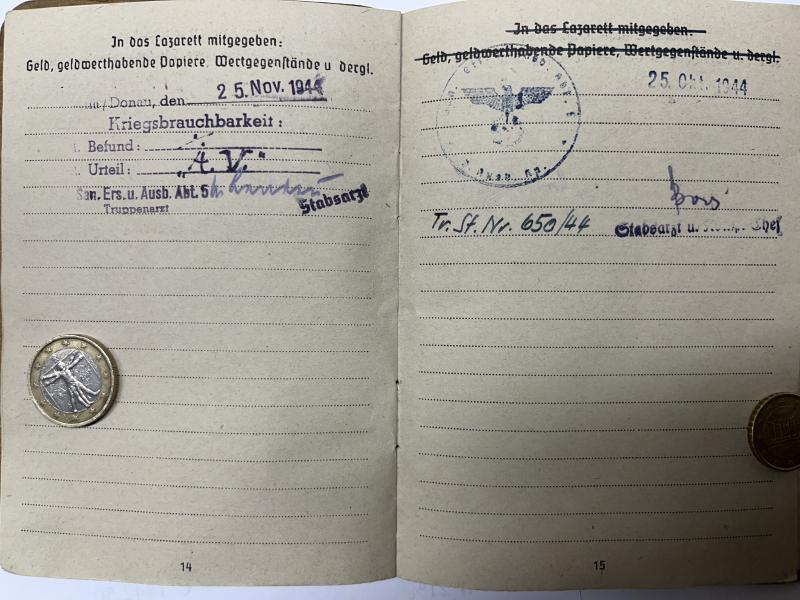 In das Lazarett mitgegeben:
Geld, geldwerthabende Papiere, Wertgegenstände u dergl.
/Donau, den 25. Nov. 1944
Kriegsbrauchbarkeit:
Befund:
Urteil: "A.V."
San. Ers. u. Ausb. Abt. 5
Stabsarzt
Truppenarzt
14
In das Lazarett mitgegeben:
Geld, geldwerthabende Papiere, Wertgegenstände u. dergl.
25. Okt. 1944
Tr. St. Nr. 650/44
Stabsarzt u. Chef
15